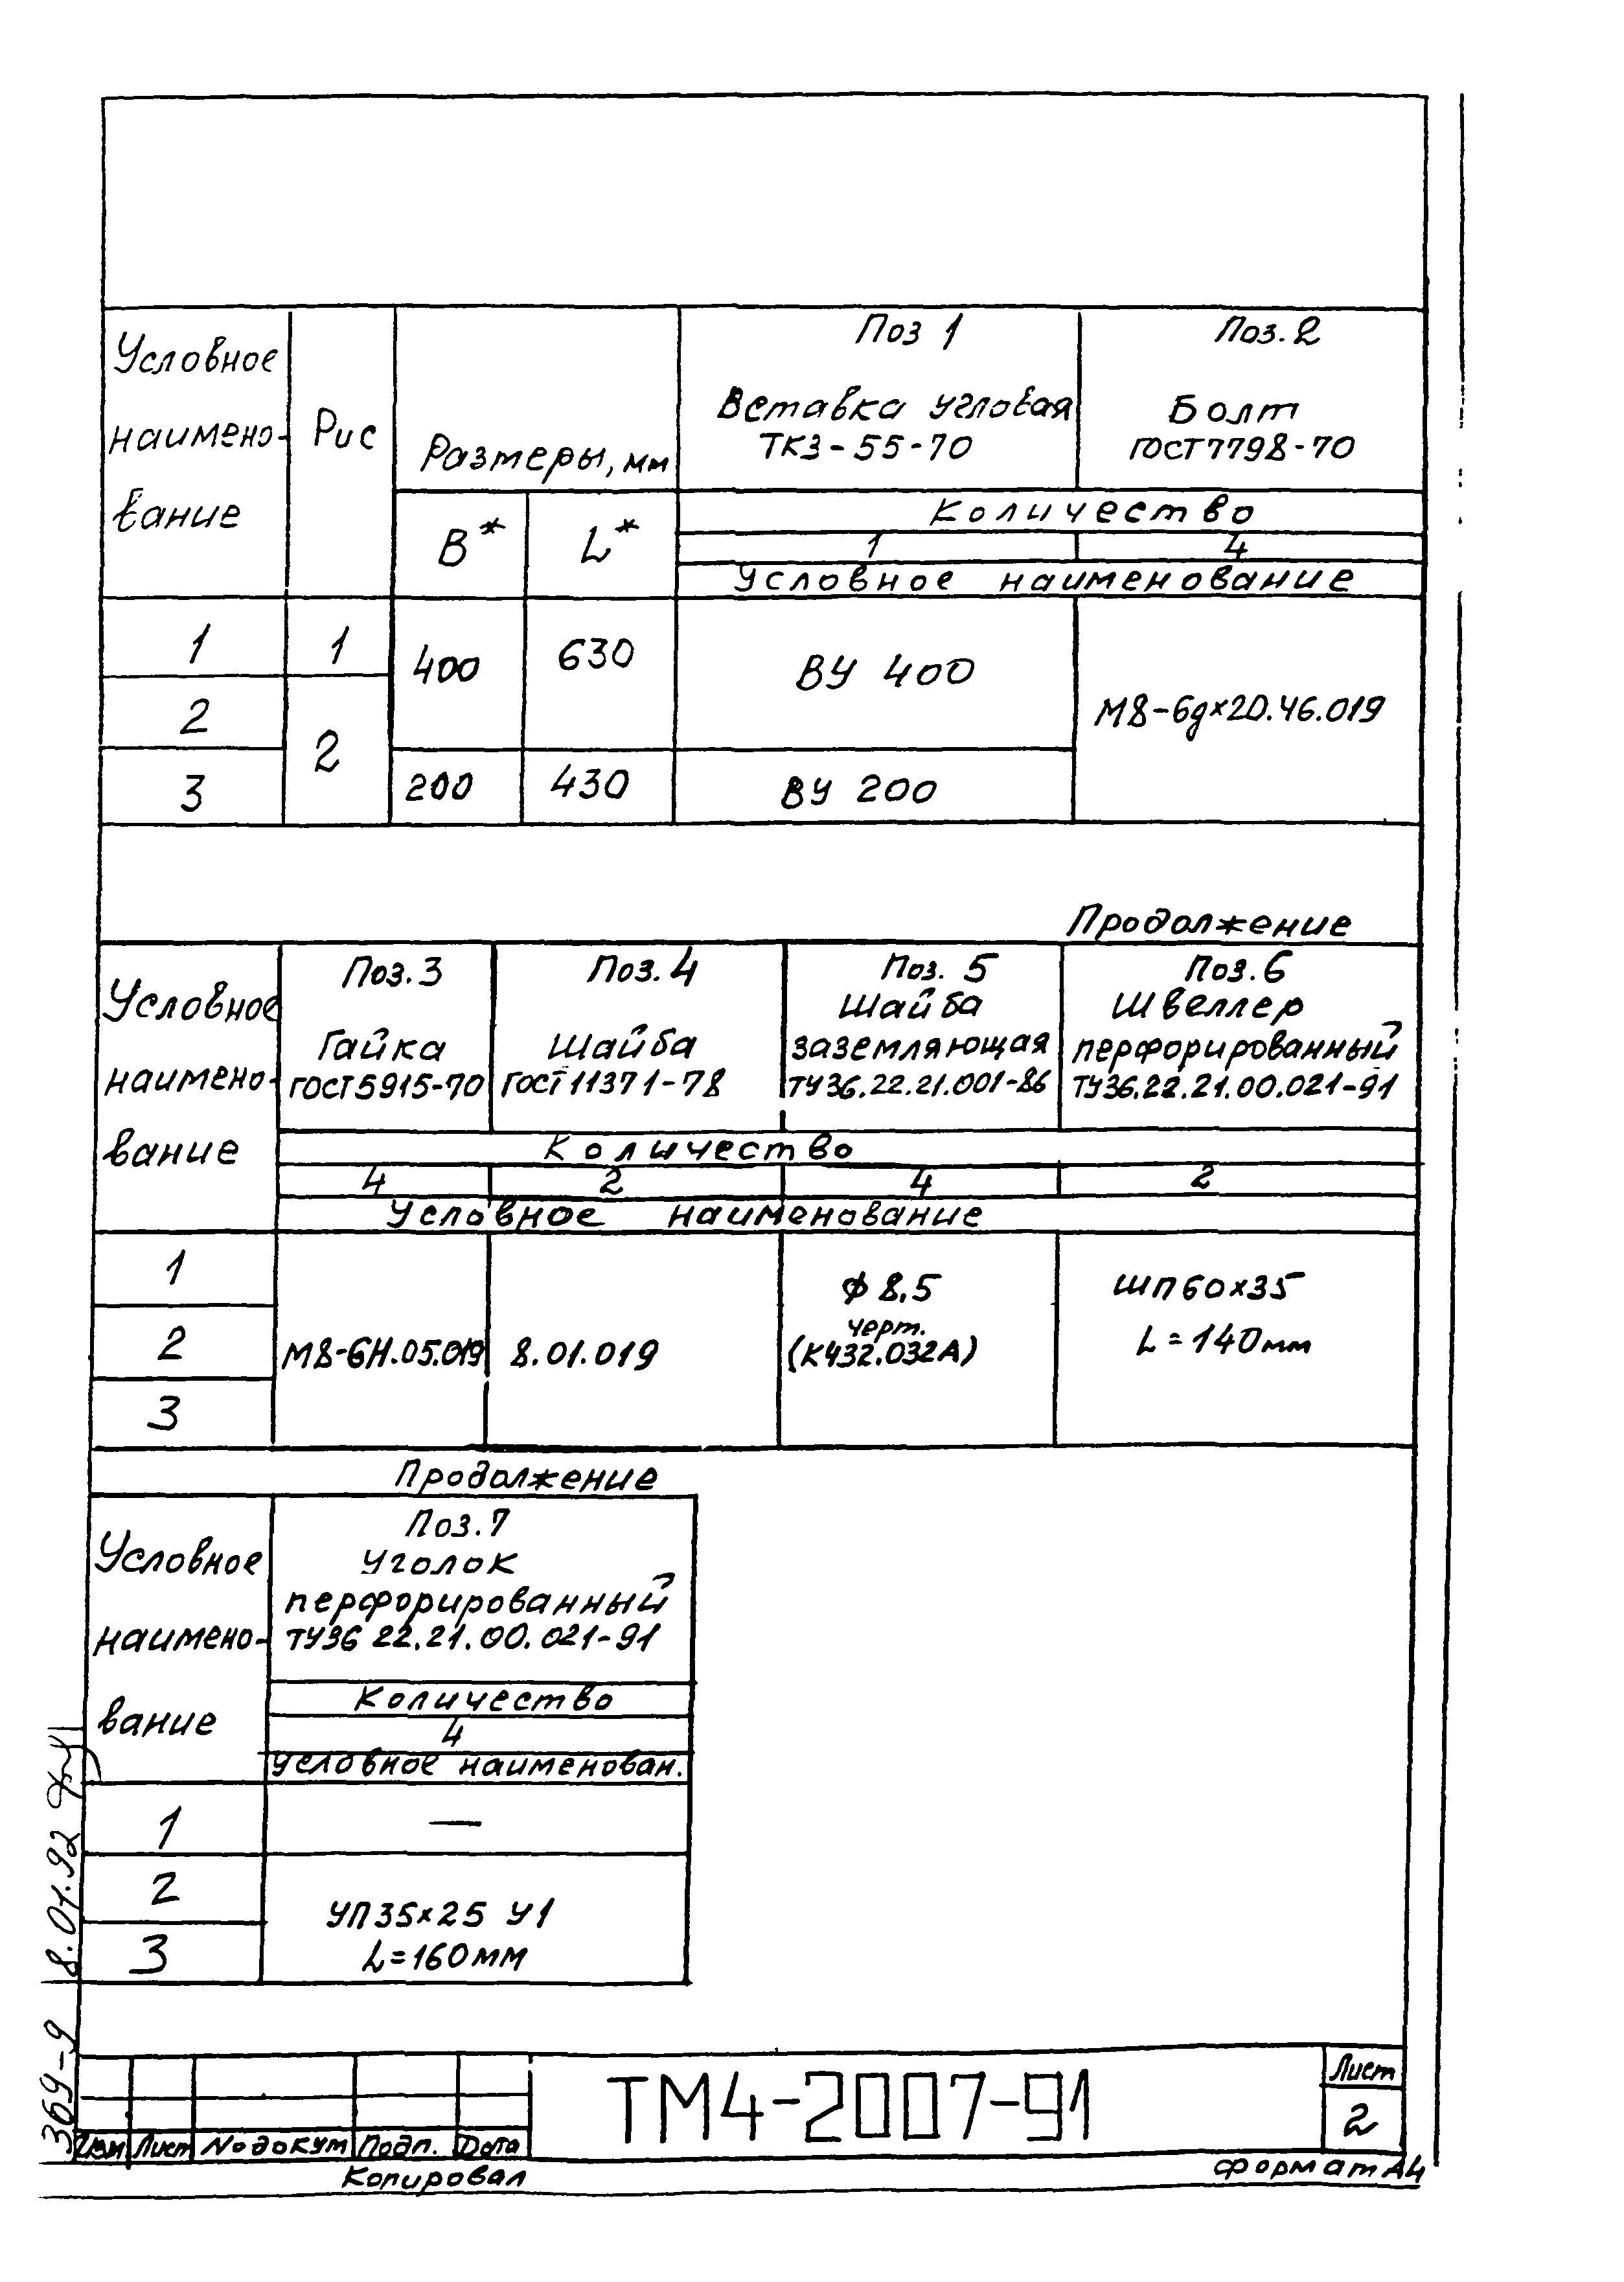 Условное
наимено-
вание
Рис
Размеры, мм
B* L*
Поз 1
Вставка угловая
ТК3-55-70
Поз. 2
Болт
ГОСТ 7798-70
Количество
1 4
Условное наименование
1 1 400 630 ВУ 400 М8-6g×20.46.019
2 2
3 200 430 ВУ 200
Продолжение
Условное
наимено-
вание
Поз. 3
Гайка
ГОСТ 5915-70
Поз. 4
Шайба
ГОСТ 11371-78
Поз. 5
Шайба
заземляющая
ТУ36.22.21.001-86
Поз. 6
Швеллер
перфорированный
ТУ36.22.21.00.021-91
Количество
4 2 4 2
Условное наименование
1
2
3
М8-6Н.05.019
8.01.019
Ф 8,5
черт.
(К432.032А)
ШП60×35
L = 140мм
Продолжение
Условное
наимено-
вание
Поз. 7
Уголок
перфорированный
ТУ36 22.21.00.021-91
Количество
4
Условное наименован.
1 —
2
3
УП35×25 У1
L=160мм
369-9
8.01.92
Изм Лист № докум Подп. Дата
ТМ4-2007-91
Лист
2
Копировал
Формат А4